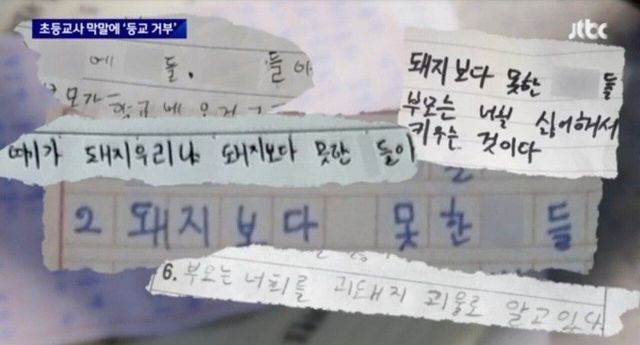 초등교사 막말에 '등교 거부'
jtbc
에 돌. 들아
모가 학교에
돼지보다 못한 들
부모는 너희 싫어해서
키우는 것이다
여기가 돼지우리냐 돼지보다 못한 들이
2 돼지보다 못한 들
6. 부모는 너희를 괴돼지 괴물로 알고있다